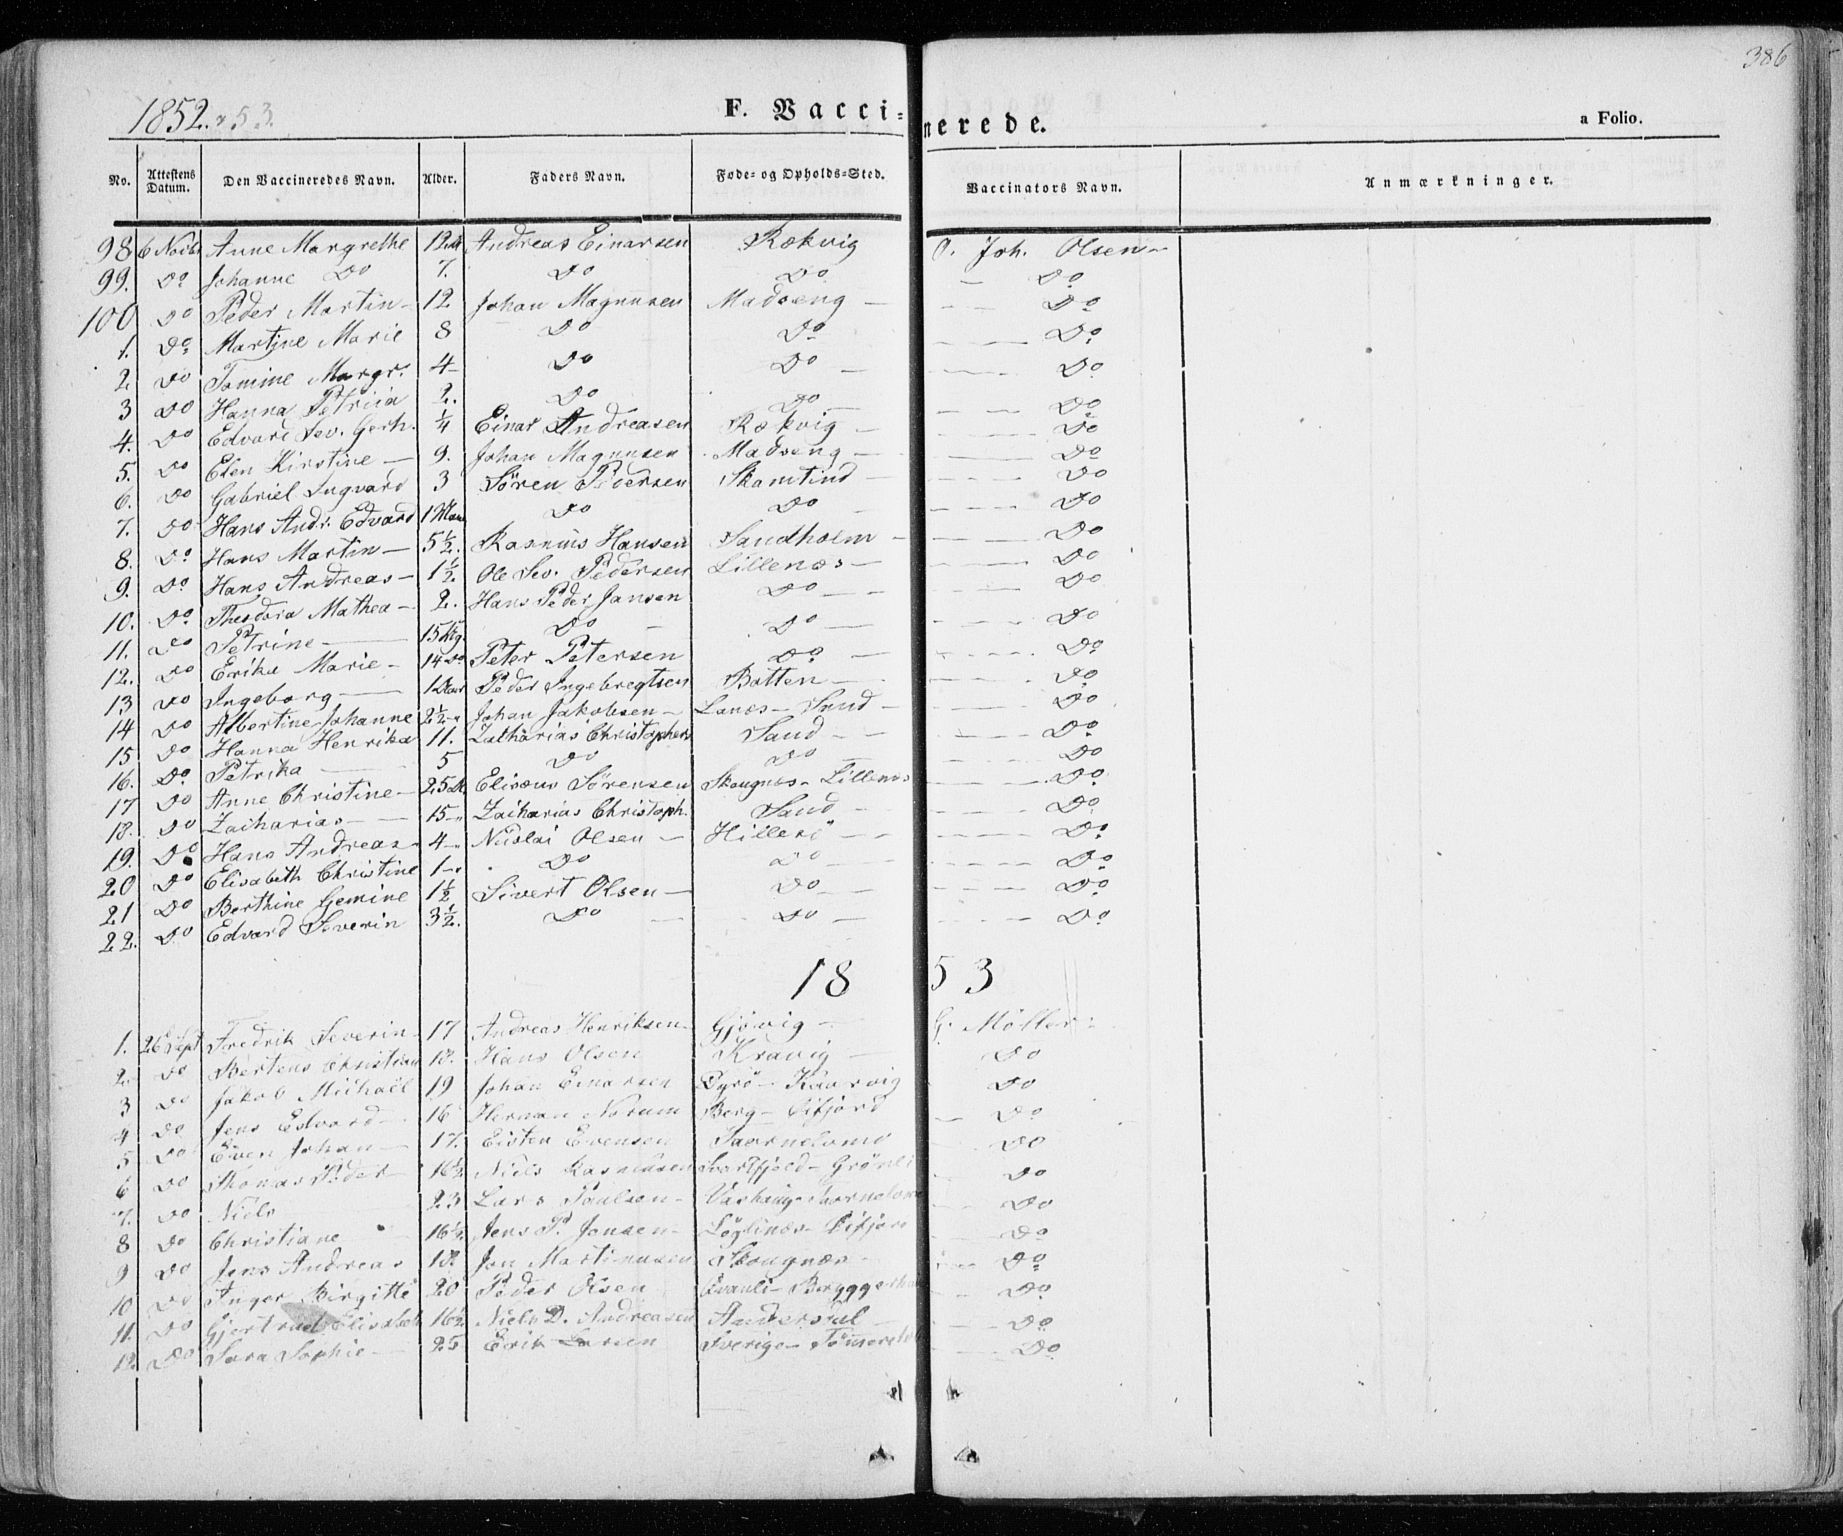 386
1852. & 53.
F. Vaccinerede.
a Folio.
No. Attestens Datum. Den Vaccineredes Navn. Alder. Faders Navn. Føde- og Opholds-Sted. Vaccinators Navn. Anmærkninger.
98 6 Novbr Anne Margrethe 12 Andreas Einarsen Rækvig O. Joh. Olsen
99. Do Johanne Do 7. Do Do Do
100 Do Peder Martin 12 Johan Magnusen Madseng Do
1. Do Martine Marie 8 Do Do Do
2 Do Tomine Margr. 4 Do Do Do
3 Do Hanna Petrina 2. Do Do Do
4. Do Edvard Sev. Gerh. 1/4 Einar Andreasen Rækvig Do
5. Do Elen Kirstine 9. Johan Magnusen Madseng Do
6. Do Gabriel Ingvard 3 Sören Pedersen Skamtind Do
7. Do Hans Andr. Edvard 1 Do Do Do
8. Do Hans Martin 5 1/2. Rasmus Hansen Sandholm Do
9. Do Hans Andreas 1 1/2. Ole Sev. Pedersen Lillenæs Do
10. Do Theodora Mathea 2. Hans Peder Jansen Do Do
11. Do Petrine 15 Do Do Do
12. Do Erika Marie 14 Do Peter Petersen Do Do
13 Do Ingeborg 1 Peder Ingebregtsen Botten Do
14 Do Albertine Johanne 2 1/2 Johan Jakobsen Lanes - Sand Do
15 Do Hanna Henrika 11. Zacharias Christophers Sand Do
16. Do Petrika 5 Do Do Do
17 Do Anne Christine 25 Elisæus Sörensen Skognes - Lillenes Do
18. Do Zacharias 15 Zacharias Christoph. Sand Do
19. Do Hans Andreas 4 Nicolai Olsen Hillesö Do
20 Do Elisabeth Christine 1 Do Do Do
21 Do Berthine Gemine 1 1/2 Sivert Olsen Do Do
22. Do Edvard Severin 3 1/2. Do Do Do
1853
1. 26 Sept Fredrik Severin 17 Andreas Henriksen Gjövig G. Möller
2. Do Bertens Christian 18. Hans Olsen Kravig Do
3 Do Jakob Michael 19 Johan Einarsen Dyrö - Kaarvig Do
4 Do Jens Edvard 16 Herman Norum Berg - Do
5 Do Even Johan 17. Eisten Evensen Do
6 Do Thomas Peder 16 1/2 Niels Rasmusen Svartfjeld - Grönli Do
7. Do Niels 23 Lars Paulsen Do
8 Do Christiane 16 1/2 Jens P. Jensen Do
9 Do Jens Andreas 18. Jon Martinusen Skognæs Do
10 Do Inger Birgitte 20 Peder Olsen Do
11. Do Gjertrud Elisabeth 16 1/2 Niels D. Andreasen Andersdal Do
12. Do Sara Sophie 25 Erik Larsen Sverige - Do